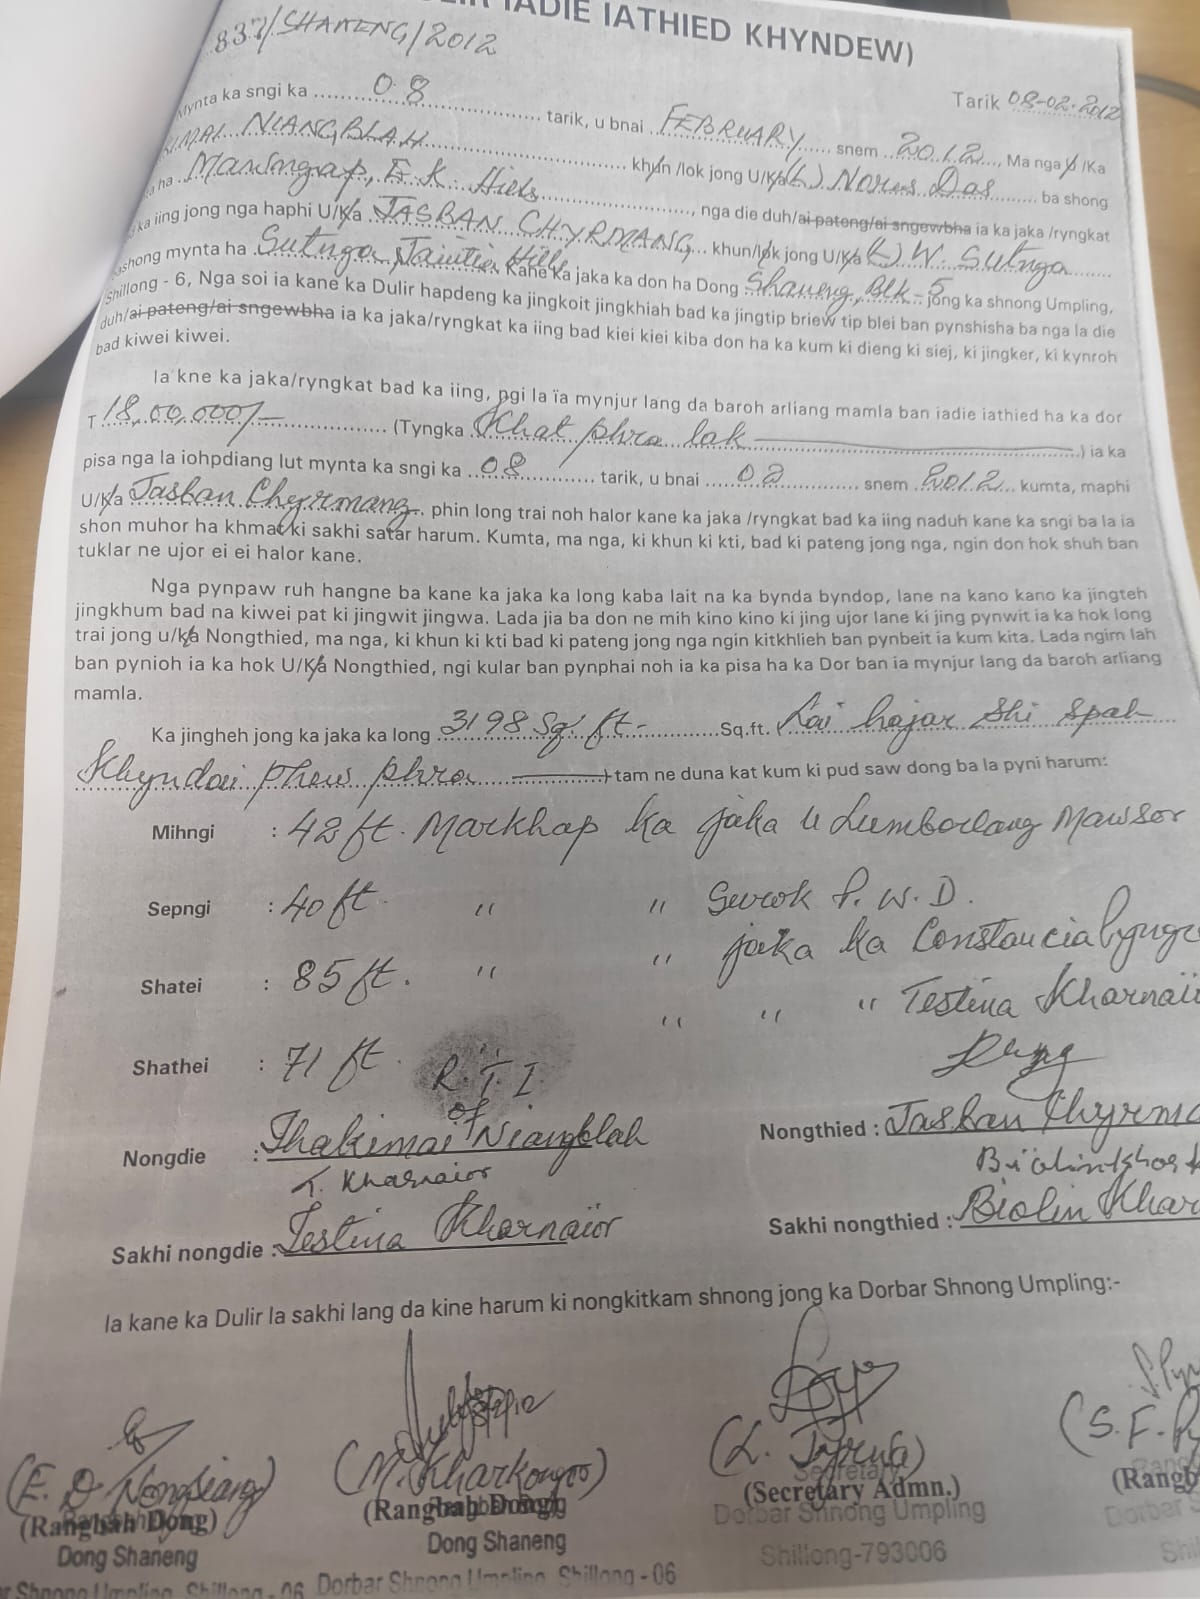 IADIE IATHIED KHYNDEW)
837/SHANENG/2012
Tarik 08-02-2012
Mynta ka sngi ka 08 tarik, u bnai FEBRUARY snem 2012, Ma nga u/Ka
NIANGBLAH khun/lok jong U/Ka (L) Das ba shong
ha Mawsngap, E.K. Hills, nga die duh/ai pateng/ai sngewbha ia ka jaka /ryngkat
ka iing jong nga haphi U/Ka JASBAN CHYRMANG khun/lok jong U/Ka (L) W. Sutnga
shong mynta ha Sutnga, Jaintia Hills Kane ka jaka ka don ha Dong Shaneng, Blk-5 jong ka shnong Umpling,
Shillong - 6, Nga soi ia kane ka Dulir hapdeng ka jingkoit jingkhiah bad ka jingtip briew tip blei ban pynshisha ba nga la die
duh/ai pateng/ai sngewbha ia ka jaka/ryngkat ka iing bad kiei kiei kiba don ha ka kum ki dieng ki siej, ki jingker, ki kynroh
bad kiwei kiwei.
Ia kne ka jaka/ryngkat bad ka iing, ngi la ïa mynjur lang da baroh arliang mamla ban iadie iathied ha ka dor
T 18,00,000/- (Tyngka Khat phra lak ) ia ka
pisa nga la iohpdiang lut mynta ka sngi ka 08 tarik, u bnai 02 snem 2012 kumta, maphi
U/Ka Jasban Chyrmang phin long trai noh halor kane ka jaka /ryngkat bad ka iing naduh kane ka sngi ba la ia
shon muhor ha khmat ki sakhi satar harum. Kumta, ma nga, ki khun ki kti, bad ki pateng jong nga, ngin don hok shuh ban
tuklar ne ujor ei ei halor kane.
Nga pynpaw ruh hangne ba kane ka jaka ka long kaba lait na ka bynda byndop, lane na kano kano ka jingteh
jingkhum bad na kiwei pat ki jingwit jingwa. Lada jia ba don ne mih kino kino ki jing ujor lane ki jing pynwit ia ka hok long
trai jong u/ka Nongthied, ma nga, ki khun ki kti bad ki pateng jong nga ngin kitkhlieh ban pynbeit ia kum kita. Lada ngim lah
ban pynioh ia ka hok U/Ka Nongthied, ngi kular ban pynphai noh ia ka pisa ha ka Dor ban ia mynjur lang da baroh arliang
mamla.
Ka jingheh jong ka jaka ka long 3198 Sq. ft- Sq.ft. Lai hajar shi spah
Khyndai phew phra tam ne duna kat kum ki pud saw dong ba la pyni harum:
Mihngi : 42 ft. Markhap ka jaka u Lumborlang Mawsor
Sepngi : 40 ft. " " Surok P.W.D.
Shatei : 85 ft. " " jaka ka Constancia
Shathei : 71 ft. " " " Testina Kharnaïor
R.T.I.
of
Nongdie : Thakimai Niangblah
T. Kharnaior
Nongthied : Jasban
Sakhi nongdie : Testina Kharnaïor
Sakhi nongthied : Biolin
Ia kane ka Dulir la sakhi lang da kine harum ki nongkitkam shnong jong ka Dorbar Shnong Umpling:-
(E. D. Nongsiang)
(Rangbah Dong)
Dong Shaneng
Shnong Umpling, Shillong - 06
(M. Kharkongor)
(Rangbah Dong)
Dong Shaneng
Dorbar Shnong Umpling, Shillong - 06
(Secretary Admn.)
Dorbar Shnong Umpling
Shillong-793006
(S. F.
(Rangb
Dorbar